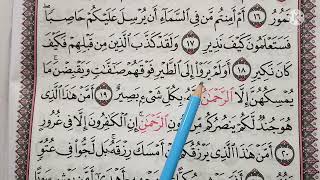 تَمُورُ ١٦ أَمْ أَمِنْتُمْ مَنْ فِي السَّمَآءِ أَنْ يُرْسِلَ عَلَيْكُمْ حَاصِبًا
فَسَتَعْلَمُونَ كَيْفَ نَذِيرِ ١٧ وَلَقَدْ كَذَّبَ الَّذِينَ مِنْ قَبْلِهِمْ فَكَيْفَ
كَانَ نَكِيرِ ١٨ أَوَلَمْ يَرَوْا إِلَى الطَّيْرِ فَوْقَهُمْ صَٰٓفَّٰتٍ وَيَقْبِضْنَ مَا
يُمْسِكُهُنَّ إِلَّا الرَّحْمَٰنُ بِكُلِّ شَيْءٍ بَصِيرٌ ١٩ أَمَّنْ هَٰذَا الَّذِي
هُوَ جُنْدٌ لَكُمْ يَنْصُرُكُمْ مِنْ دُونِ الرَّحْمَٰنِ إِنِ الْكَٰفِرُونَ إِلَّا فِي غُرُورٍ
٢٠ أَمَّنْ هَٰذَا الَّذِي يَرْزُقُكُمْ إِنْ أَمْسَكَ رِزْقَهُ بَلْ لَجُّوا فِي عُتُوٍّ